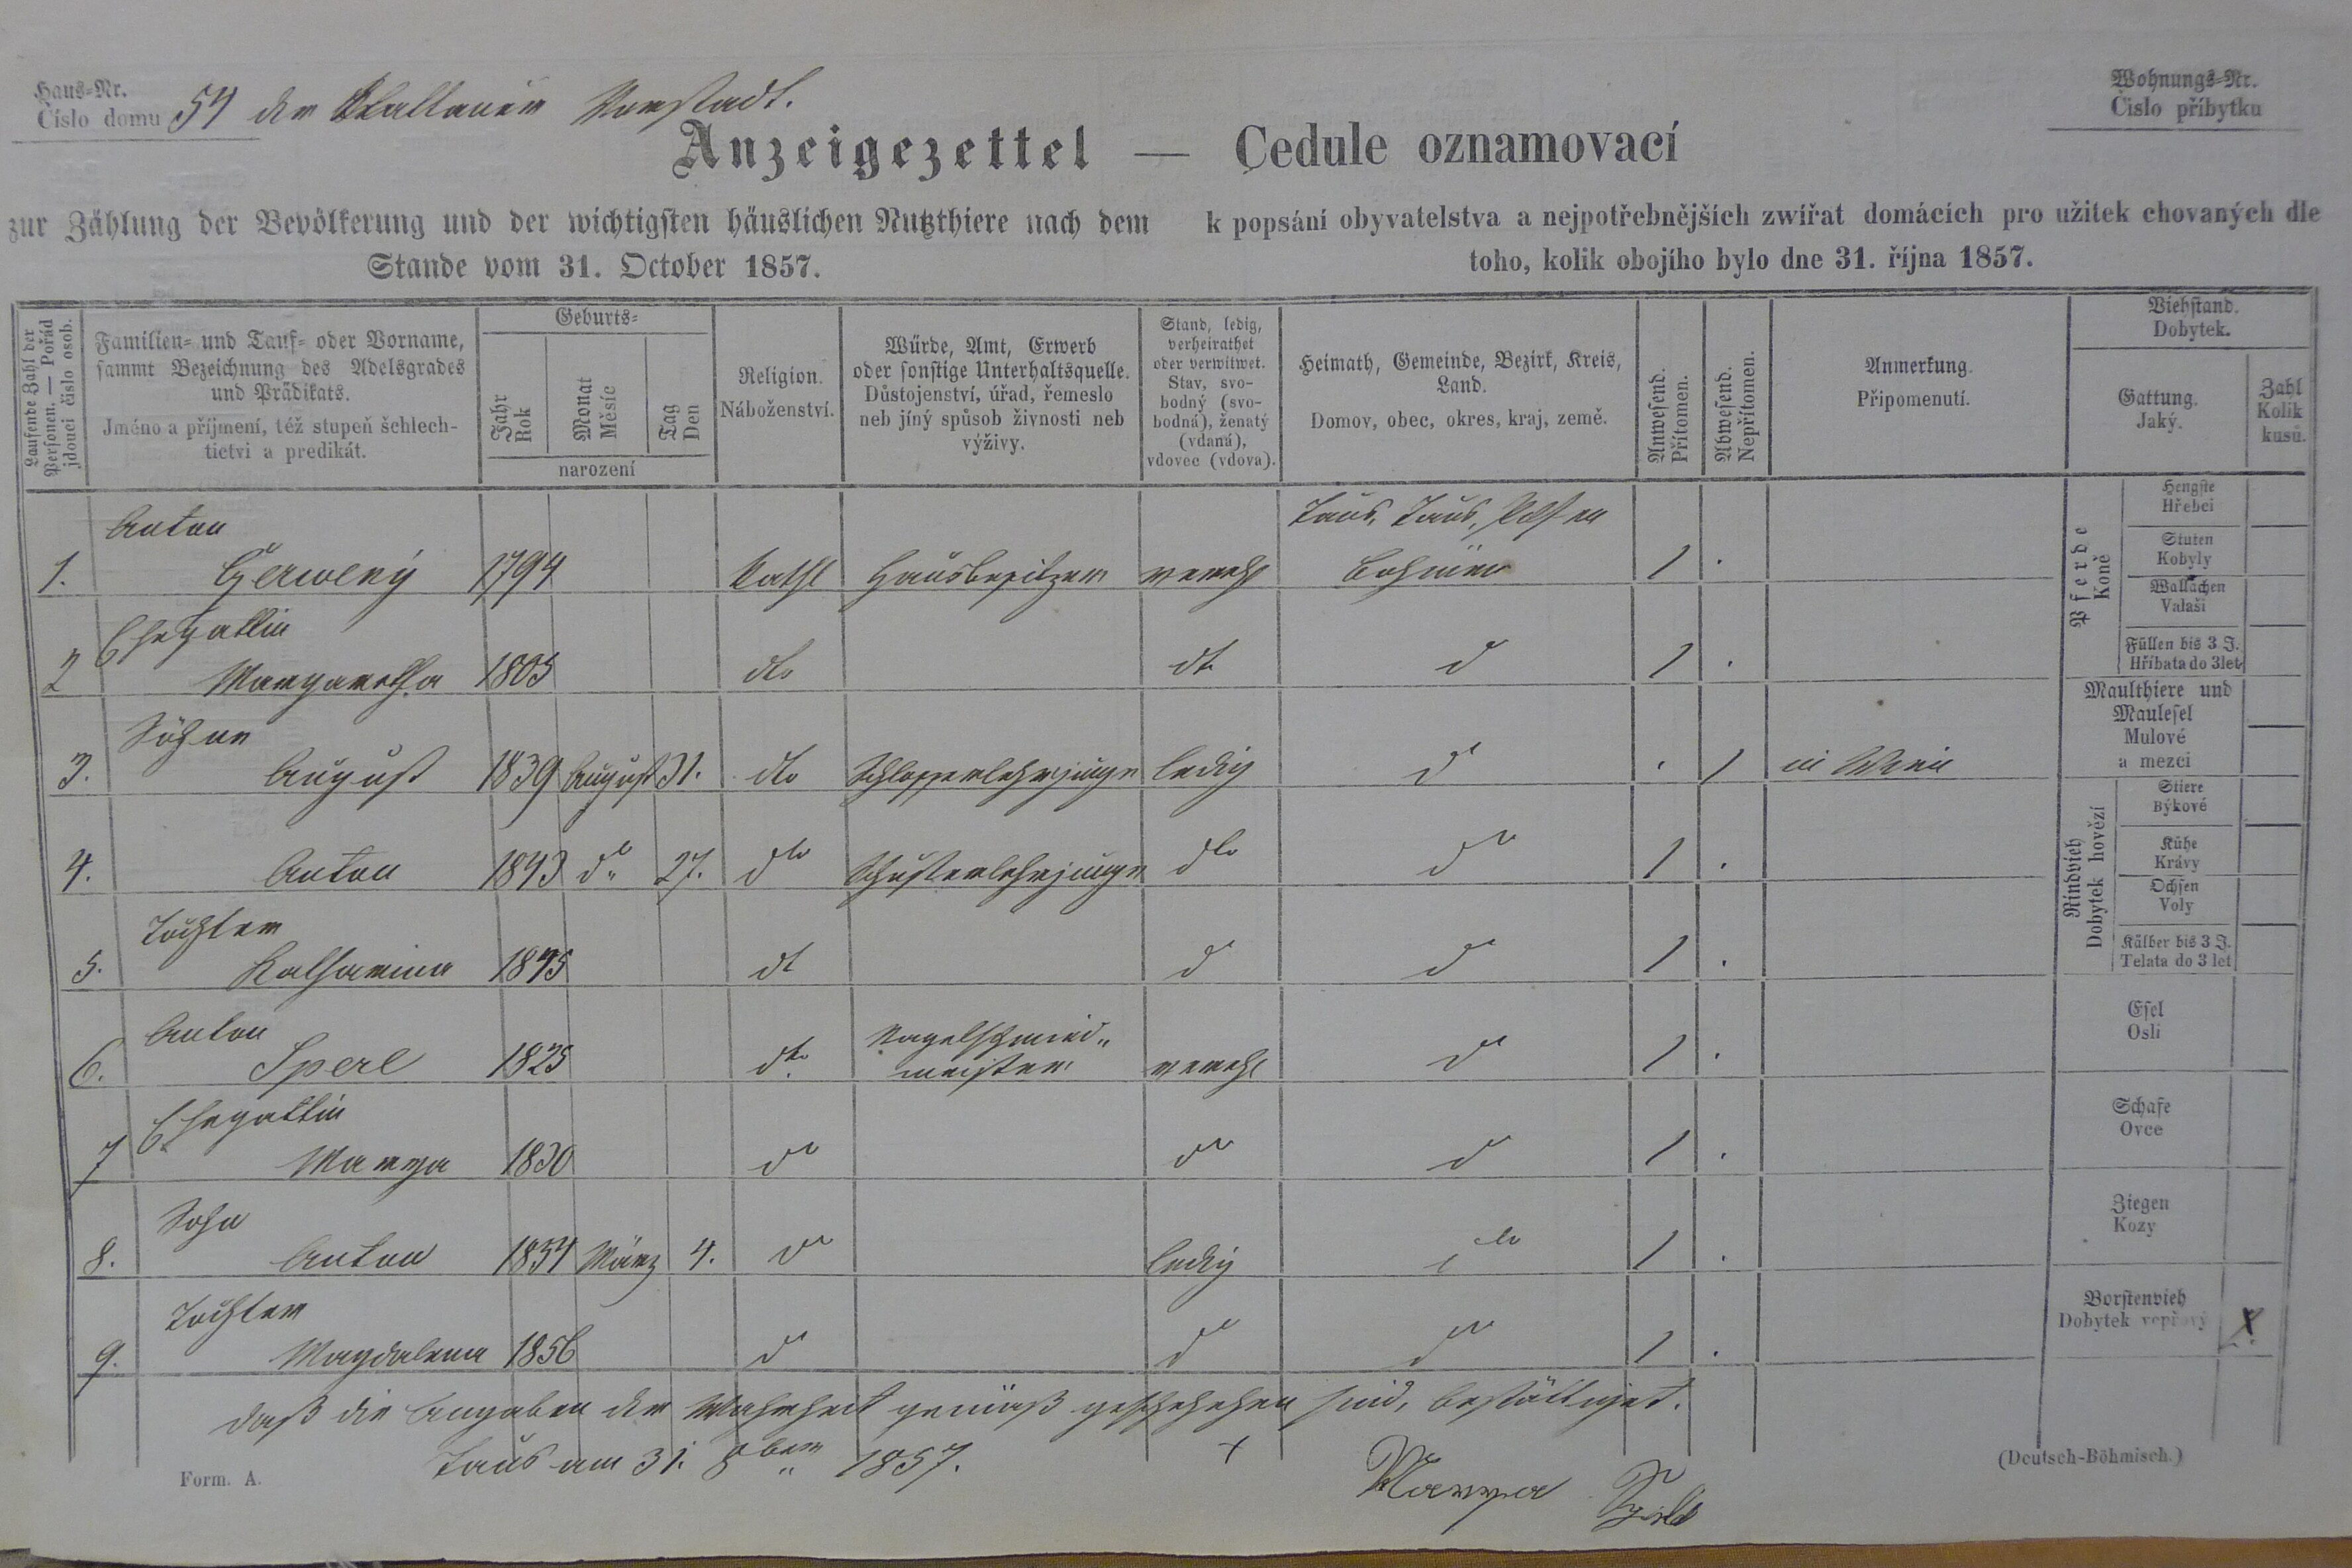 Haus-Nr.
Číslo domu 54 der Vorstadt.
Wohnungs-Nr.
Čislo příbytku
Anzeigezettel — Cedule oznamovací
zur Zählung der Bevölkerung und der wichtigsten häuslichen Nutzthiere nach dem
Stande vom 31. October 1857.
k popsání obyvatelstva a nejpotřebnějších zwířat domácích pro užitek chovaných dle
toho, kolik obojího bylo dne 31. října 1857.
Laufende Zahl der
Personen. — Pořád
jdoucí číslo osob.
Familien- und Tauf- oder Vorname,
sammt Bezeichnung des Adelsgrades
und Prädikats.
Jméno a příjmení, též stupeň šchlech-
tictvi a predikát.
Geburts-
Jahr
Rok
Monat
Měsíc
Tag
Den
narození
Religion.
Náboženství.
Würde, Amt, Erwerb
oder sonstige Unterhaltsquelle.
Důstojenství, úřad, řemeslo
neb jíný spůsob živnosti neb
výživy.
Stand, ledig,
verheirathet
oder verwitwet.
Stav, svo-
bodný (svo-
bodná), ženatý
(vdaná),
vdovec (vdova).
Heimath, Gemeinde, Bezirk, Kreis,
Land.
Domov, obec, okres, kraj, země.
Anwesend.
Přítomen.
Abwesend.
Nepřítomen.
Anmerkung.
Připomenutí.
Viehstand.
Dobytek.
Gattung.
Jaký.
Zahl
Kolik
kusů.
Anton Taus, Taus, Pilsen
1. Červený 1794 Kathl Hausbesitzer vereh Böhmen 1 .
Ehegattin
2 Margaretha 1805 dto dt d 1 .
Söhne
3. August 1839 August 31. dto Schlosserlehrjunge ledig d . 1 in Wien
4. Anton 1843 do 27. dto Schusterlehrjunge dto do 1 .
Tochter
5. Katharina 1845 dt d d 1 .
Anton Nagelschmied„
6. Sperl 1825 dto meister vereh d 1 .
Ehegattin
7 Marya 1830 do do d 1 .
Sohn
8. Anton 1854 März 4. do ledig dto 1 .
Tochter
9. Magdalena 1856 d d do 1 .
Pferde
Koně
Hengste
Hřebci
Stuten
Kobyly
Wallachen
Valaši
Füllen bis 3 J.
Hříbata do 3 let
Maulthiere und
Maulesel
Mulové
a mezci
Rindvieh
Dobytek hovězí
Stiere
Býkové
Kühe
Krávy
Ochsen
Voly
Kälber bis 3 J.
Telata do 3 let
Esel
Osli
Schafe
Ovce
Ziegen
Kozy
Borstenvieh
Dobytek vepřový
daß die Angaben der Wahrheit gemäß geschehen sind, bestättiget.
Taus am 31. 8ber 1857. +
Marya
Form. A.
(Deutsch-Böhmisch.)